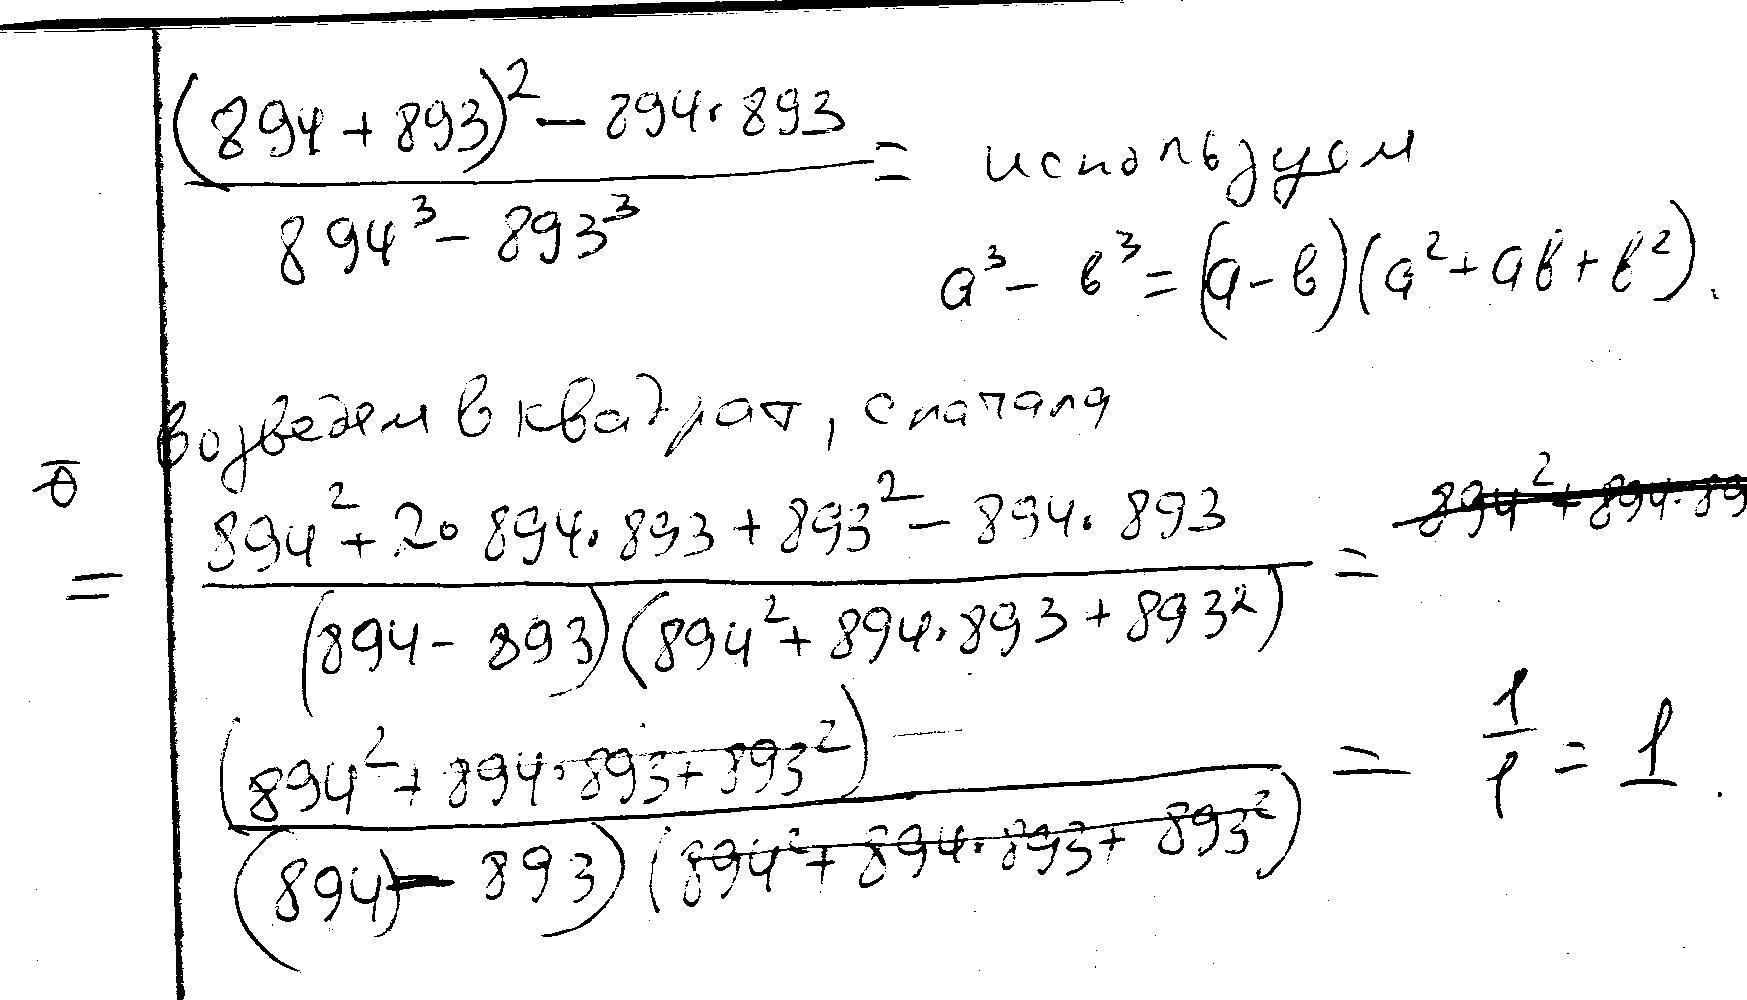 (894 + 893)² − 894 · 893
894³ − 893³
= используем
a³ − в³ = (а − в)(а² + ав + в²).
возведем в квадрат, сначала
= 894² + 2 · 894 · 893 + 893² − 894 · 893
(894 − 893)(894² + 894 · 893 + 893²)
= 894² + 894 · 89
(894² + 894 · 893 + 893²)
(894 − 893)(894² + 894 · 893 + 893²)
= 1/1 = 1.